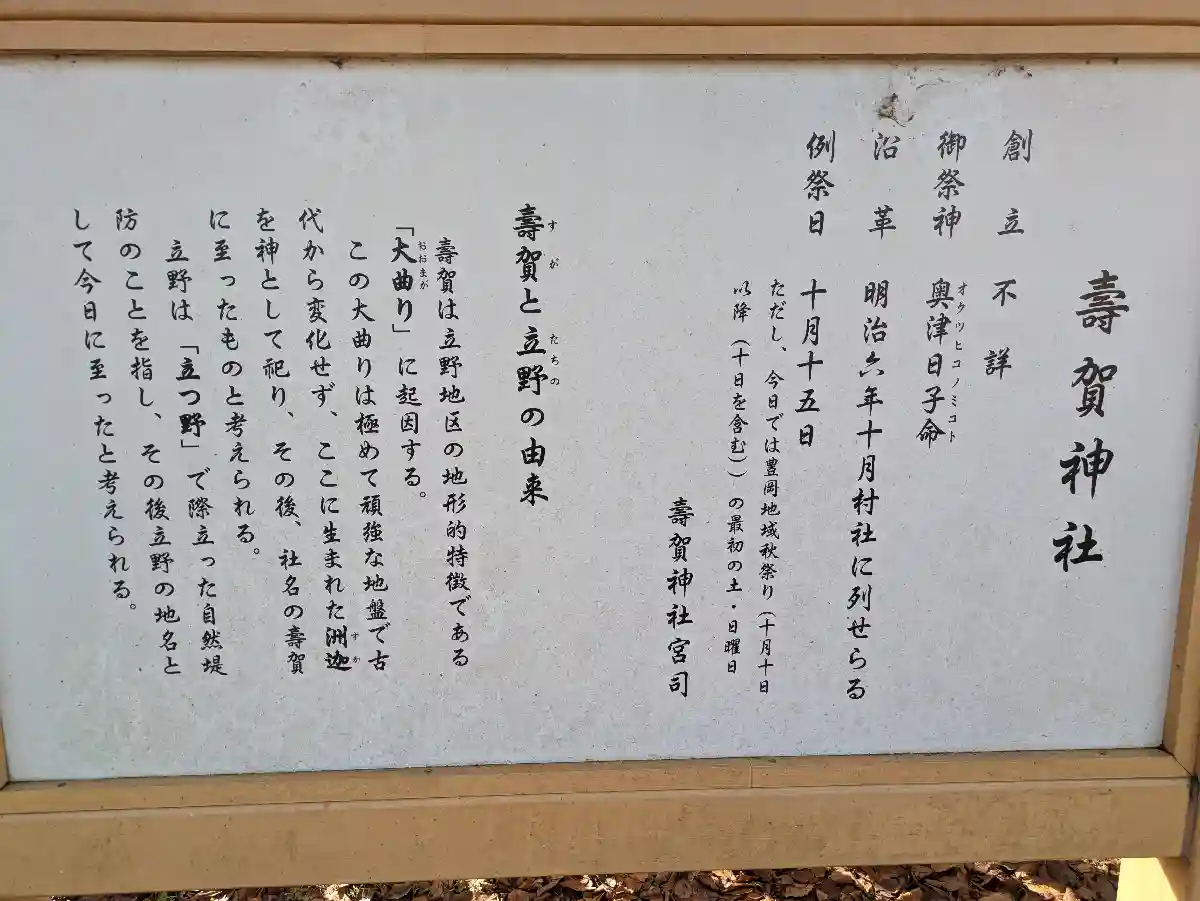 壽賀神社
創立 不詳
御祭神 奥津日子命
オクツヒコノミコト
沿革 明治六年十月村社に列せらる
例祭日 十月十五日
ただし、今日では豊岡地域秋祭り(十月十日
以降(十日を含む))の最初の土・日曜日
壽賀神社宮司
壽賀と立野の由来
すが たちの
壽賀は立野地区の地形的特徴である
「大曲り」に起因する。
おおまが
この大曲りは極めて頑強な地盤で古
代から変化せず、ここに生まれた洲迦
すか
を神として祀り、その後、社名の壽賀
に至ったものと考えられる。
立野は「立つ野」で際立った自然堤
防のことを指し、その後立野の地名と
して今日に至ったと考えられる。